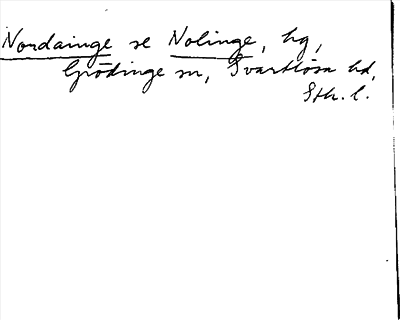 Nordainge se Nolinge, hg,
Grödinge sn, Svartlösa hd,
Sth. l.